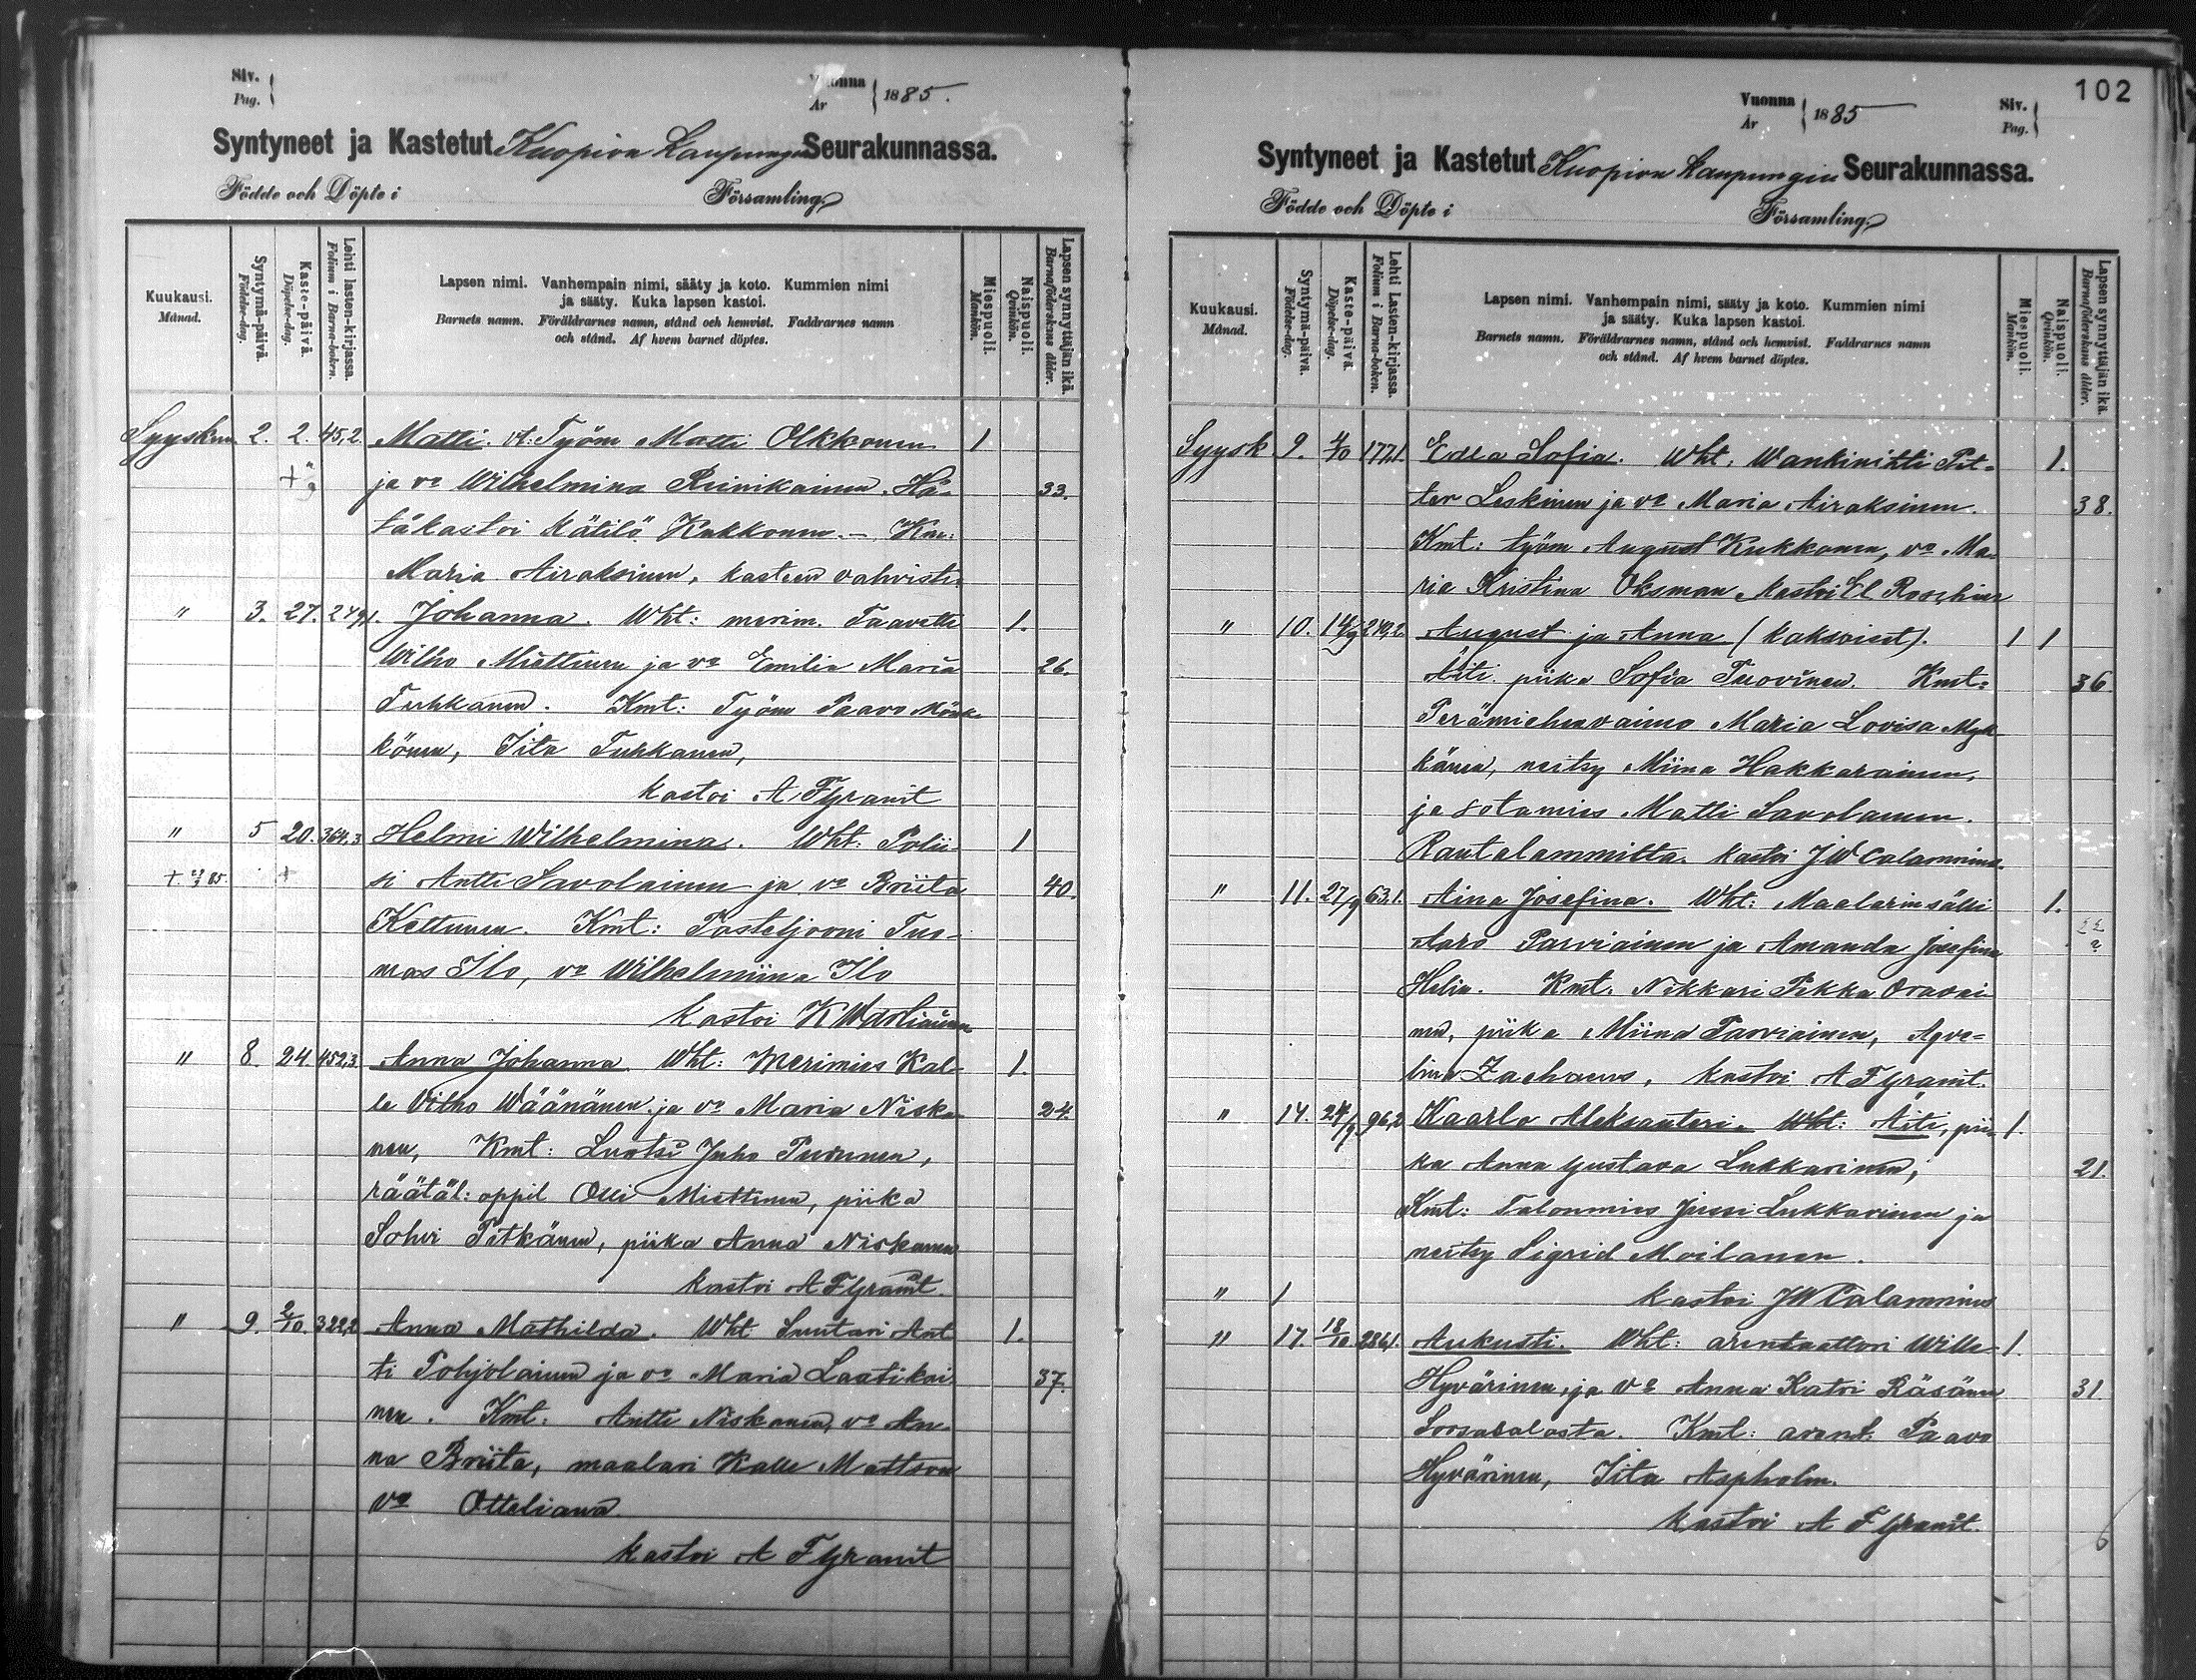 Siv.
Pag.
Vuonna
År
1885.
Syntyneet ja Kastetut Kuopion Kaupungin Seurakunnassa.
Födde och Döpte i Församling.
Kuukausi.
Månad.
Syntymä-päivä.
Födelse-dag.
Kaste-päivä.
Döpelse-dag.
Lehti lasten-kirjassa.
Folium i Barna-boken.
Lapsen nimi. Vanhempain nimi, sääty ja koto. Kummien nimi
ja sääty. Kuka lapsen kastoi.
Barnets namn. Föräldrarnes namn, stånd och hemvist. Faddrarnes namn
och stånd. Af hvem barnet döptes.
Miespuoli.
Mankön.
Naispuoli.
Qvinkön.
Lapsen synnyttäjän ikä.
Barnaföderskans ålder.
Syyskuu. 2. 2. 45,2. Matti. vt: Työm Matti Olkkonen 1
ja vo Wilhelmina Reinikainen. Hä- 33.
täkastoi kätilö Kukkonen. — Km:
Maria Airaksinen, kasteen vahvisti.
" 3. 27. 249,1. Johanna. Wht: merim. Taavetti 1.
Wilho Miettinen ja vo Emilia Maria 26.
Tuhkanen. Kmt: Työm Paavo Mönk-
könen, Iita Tuhkanen,
kastoi A F Granit
" 5 20. 364,3 Helmi Wilhelmina. Wht: Polii- 1
si Antti Savolainen ja vo Briita 40.
Kettunen. Kmt: Posteljooni Tuo-
mas Ilo, vo Wilhelmiina Ilo
kastoi K
" 8. 24. 452,3 Anna Johanna. Wht: Merimies Kal- 1.
le Vilho Wäänänen ja vo Maria Niska- 24.
nen, Kmt: Luotsi Juho Purunen,
räätäl: oppil Olli Miettinen, piika
Sohvi Pitkänen, piika Anna Niskanen
kastoi A F Granit.
" 9. 2/10. 322,2 Anna Mathilda. Wht Suutari Ant 1.
ti Pohjolainen ja vo Maria Laatikai 37.
nen. Kmt: Antti Niskanen, vo An-
na Briita, maalari Kalle Mattson
vo Otteliana
kastoi A F Granit
102
Vuonna
År
1885
Siv.
Pag.
Syntyneet ja Kastetut Kuopion Kaupungin Seurakunnassa.
Födde och Döpte i Församling.
Kuukausi.
Månad.
Syntymä-päivä.
Födelse-dag.
Kaste-päivä.
Döpelse-dag.
Lehti Lasten-kirjassa.
Folium i Barna-boken.
Lapsen nimi. Vanhempain nimi, sääty ja koto. Kummien nimi
ja sääty. Kuka lapsen kastoi.
Barnets namn. Föräldrarnes namn, stånd och hemvist. Faddrarnes namn
och stånd. Af hvem barnet döptes.
Miespuoli.
Mankön.
Naispuoli.
Qvinkön.
Lapsen synnyttäjän ikä.
Barnaföderskans ålder.
Syysk 9. 4/10 177,1. Edla Sofia. Wht: Wankinihti Pet- 1.
ter Leskinen ja vo Maria Airaksinen. 38.
Kmt: työm August Kukkonen, vo Ma-
ria Kristina Oksman kastoi El Roschier
" 10. 14/9 249,2. August ja Anna (kaksoiset). 1 1
Äiti piika Sofia Turovinen. Kmt: 36
Perämiehenvaimo Maria Lovisa Myk-
känen, neitsy Miina Hakkarainen,
ja sotamies Matti Savolainen.
Rautalammilta. kastoi J W Calamnius.
" 11. 27/9 63,1. Aina Josefina. Wht: Maalarinsälli 1.
Aaro Parviainen ja Amanda Josefina
Helin. Kmt: Nikkari Pekka Oravai-
nen, piika Miina Parviainen, Aqve-
lina Zachæus, kastoi A F Granit.
" 14. 24/9 96,2 Kaarlo Aleksanteri. Wht: Äiti, pii- 1.
ka Anna Gustava Lukkarinen, 21.
Kmt: Talonmies Jussi Lukkarinen ja
neitsy Sigrid Moilanen.
" 1 kastoi J W Calamnius
" 17. 18/10 286,1. Aukusti. Wht: arentaattori Wille 1.
Hyvärinen, ja vo Anna Katri Räsänen 31
Soosalosta. Kmt: arent: Paavo
Hyvärinen, Iita Aspholm.
kastoi A F Granit.